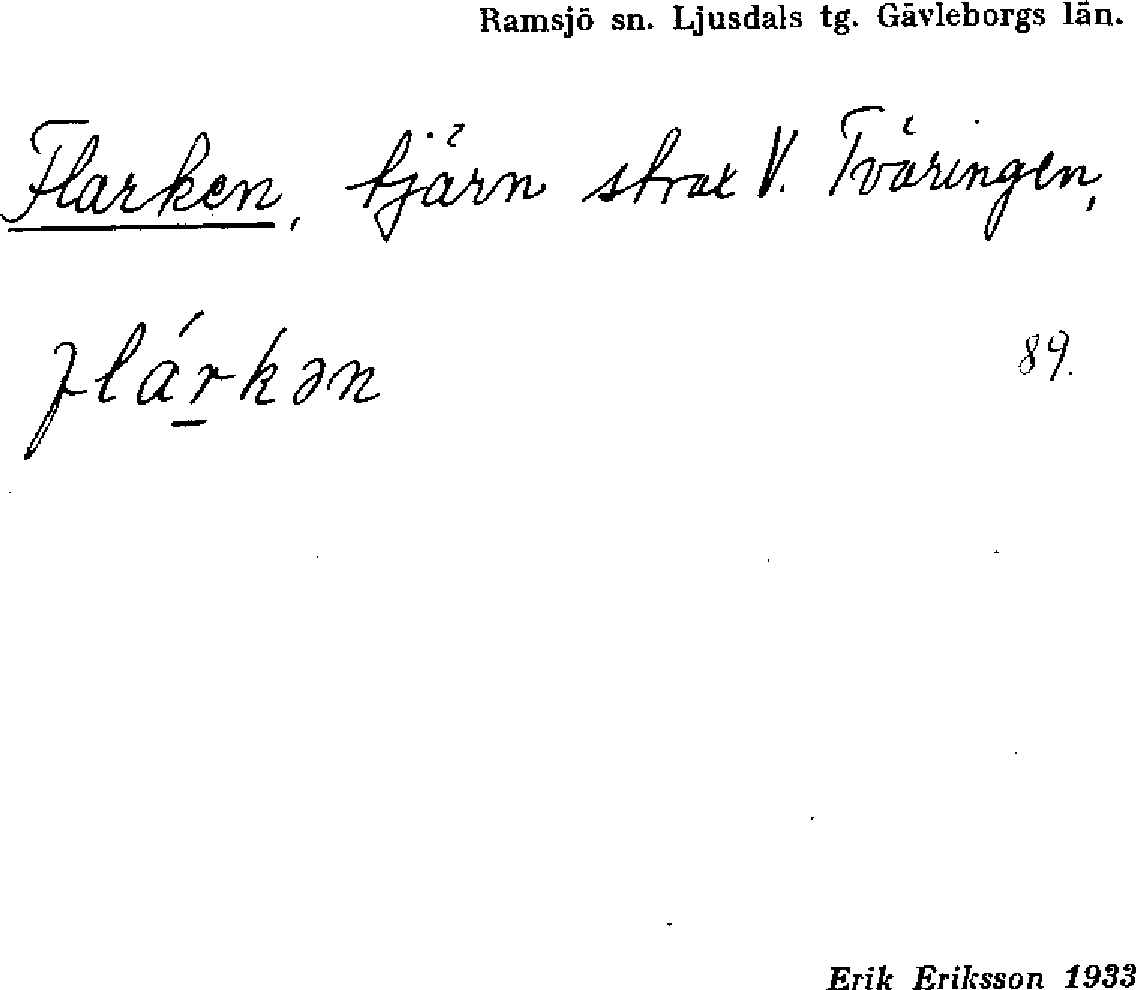 Ramsjö sn. Ljusdals tg. Gävleborgs län.
Flarken, tjärn strax V. Tväringen,
flárkən
89.
Erik Eriksson 1933